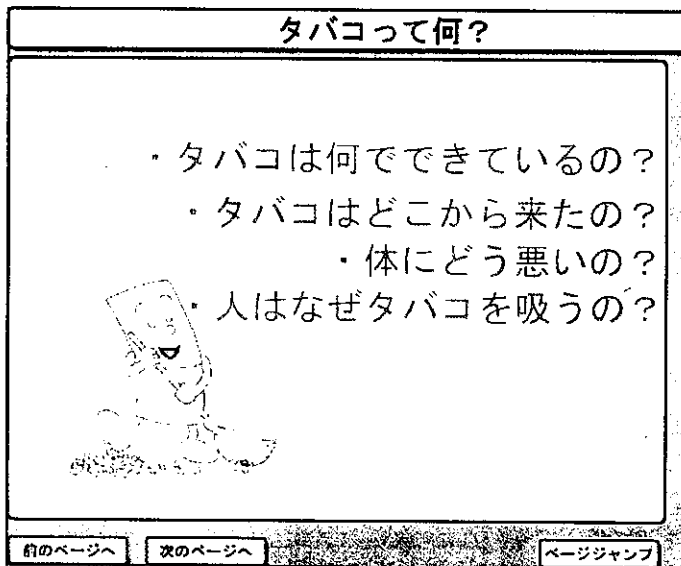 タバコって何？
・タバコは何でできているの？
・タバコはどこから来たの？
・体にどう悪いの？
・人はなぜタバコを吸うの？
前のページへ
次のページへ
ページジャンプ